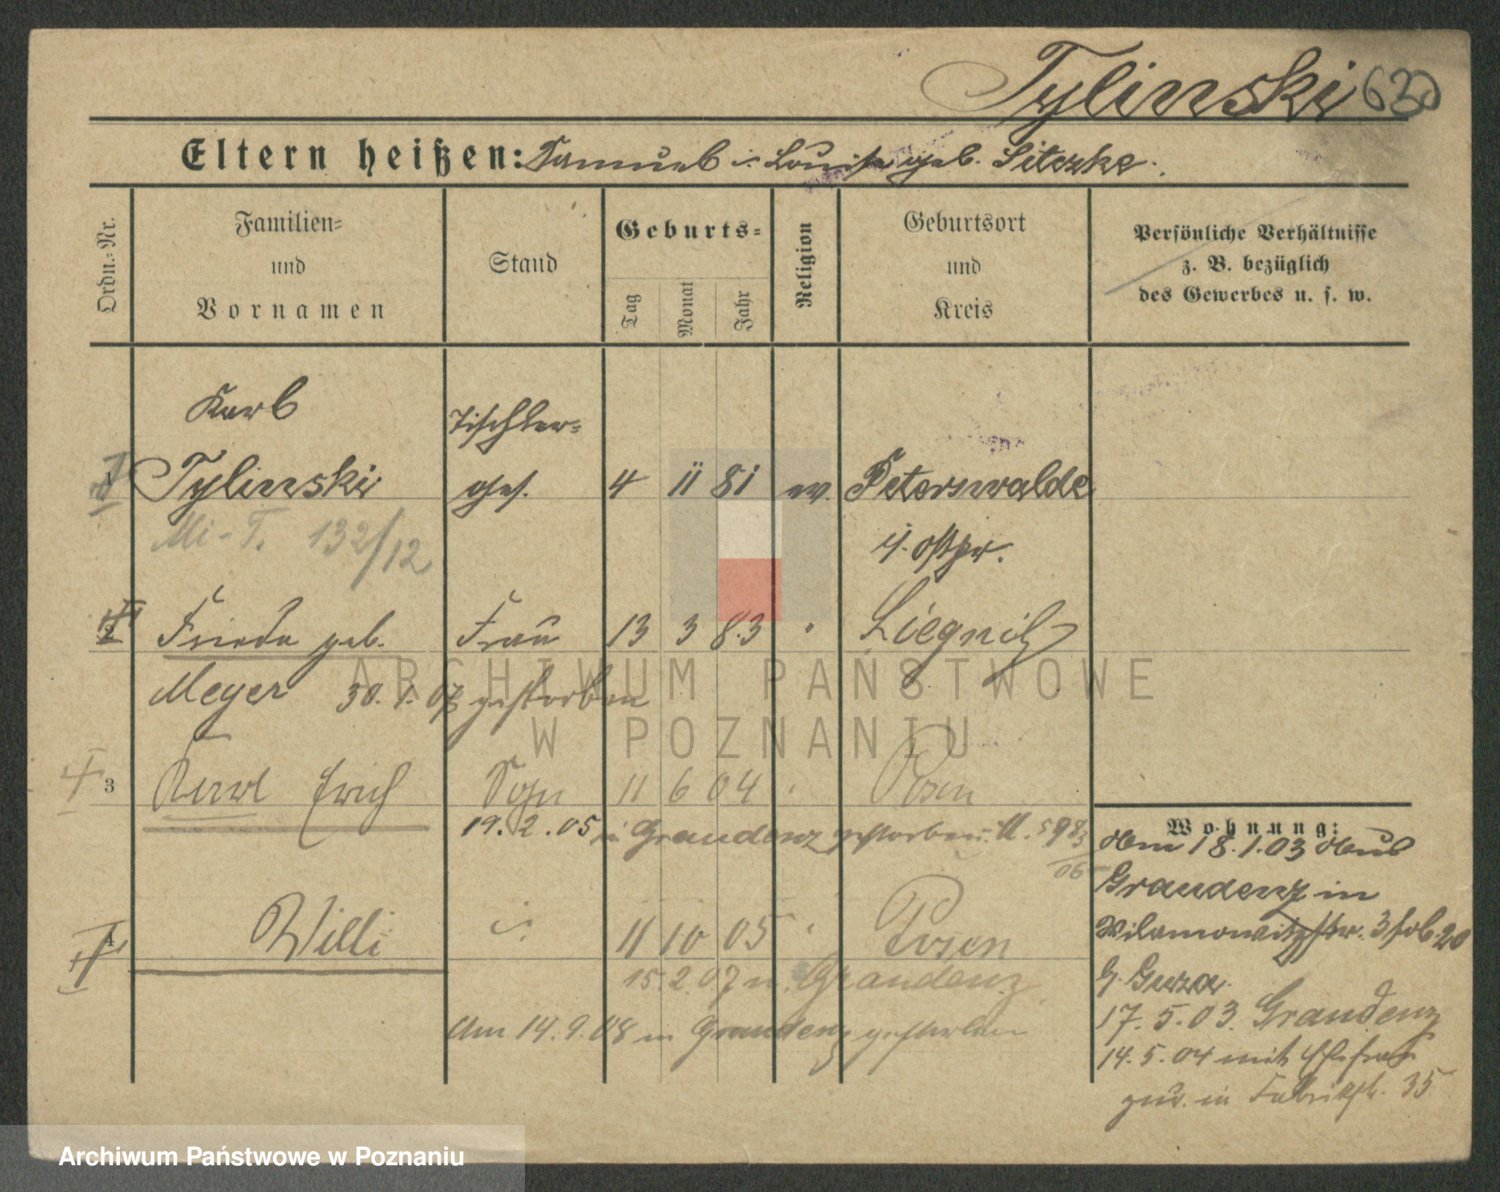 Tylinski 620
Eltern heißen: Samuel u. Louise geb. Sitezke.
Ordn.-Nr.
Familien-
und
Vornamen
Stand
Geburts-
Tag
Monat
Jahr
Religion
Geburtsort
und
Kreis
Persönliche Verhältnisse
z. B. bezüglich
des Gewerbes u. s. w.
Karl
Tischler-
1 Tylinski ges. 4 11 81 ev. Peterswalde
Mi-T. 132/12 i/ Ostpr.
2 Frieda geb. Frau 13 3 83 " Liegnitz
Meyer 30. 1. 07 gestorben
3 Karl Erich Sohn 11 6 04 " Posen
19. 2. 05 n Graudenz gestorben. U. 598/06
4 Willi " 11 10 05 " Posen
15. 2 07 n. Graudenz
Am 14. 9. 08 in Graudenz gestorben
Wohnung:
Am 18. 1. 03 aus
Graudenz in
Wilamowitzstr. 3
b. Guza.
17. 5. 03. Graudenz
14. 5. 04 mit Ehefrau
zur. in Fabrikstr. 35
ARCHIWUM PAŃSTWOWE
W POZNANIU
Archiwum Państwowe w Poznaniu